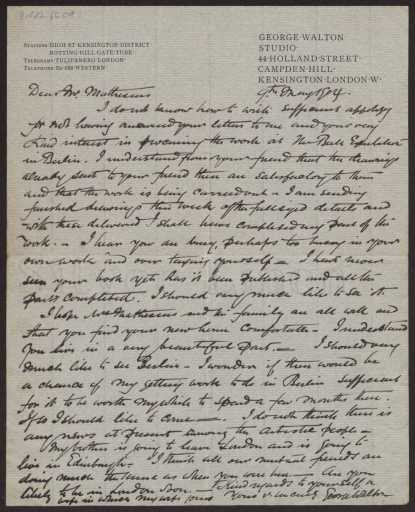 STATIONS HIGH ST KENSINGTON DISTRICT
NOTTING HILL GATE TUBE
TELEGRAMS TULIPANERO LONDON
WESTERN
GEORGE WALTON
STUDIO
44 HOLLAND STREET
CAMPDEN HILL
KENSINGTON LONDON W
Dear Mr Muthesius
9th May 1904
I do not know how to write sufficient apology
for not having answered your letter to me and your very
kind interest in procuring the work at the
in Berlin. I understand from your friend that the drawings
already sent to your friend there are satisfactory to them
and that the work is being carried out - I am sending
finished drawings this week of the details and
with these delivered I shall have completed my part of the
work. - I hear you are busy, perhaps too busy in your
own work and over taxing yourself - I have never
seen your book yet has it been published and all the
parts completed. I should very much like to see it.
I hope Mrs Muthesius and the family are all well and
that you find your new home comfortable - I understand
you live in a very beautiful part. - I should very
much like to see Berlin - I wonder if there would be
a chance of my getting work to do in Berlin sufficient
for it to be worth my while to spend a few months here.
If so I should like to come - I do not think there is
any news at present among the artistic people -
My brother is going to leave London and is going to
live in Edinburgh. I think all our mutual friends are
doing much the same as when you were here - Are you
likely to be in London soon - Kind regards to yourself &
wife in which my wife joins
Yours sincerely George Walton